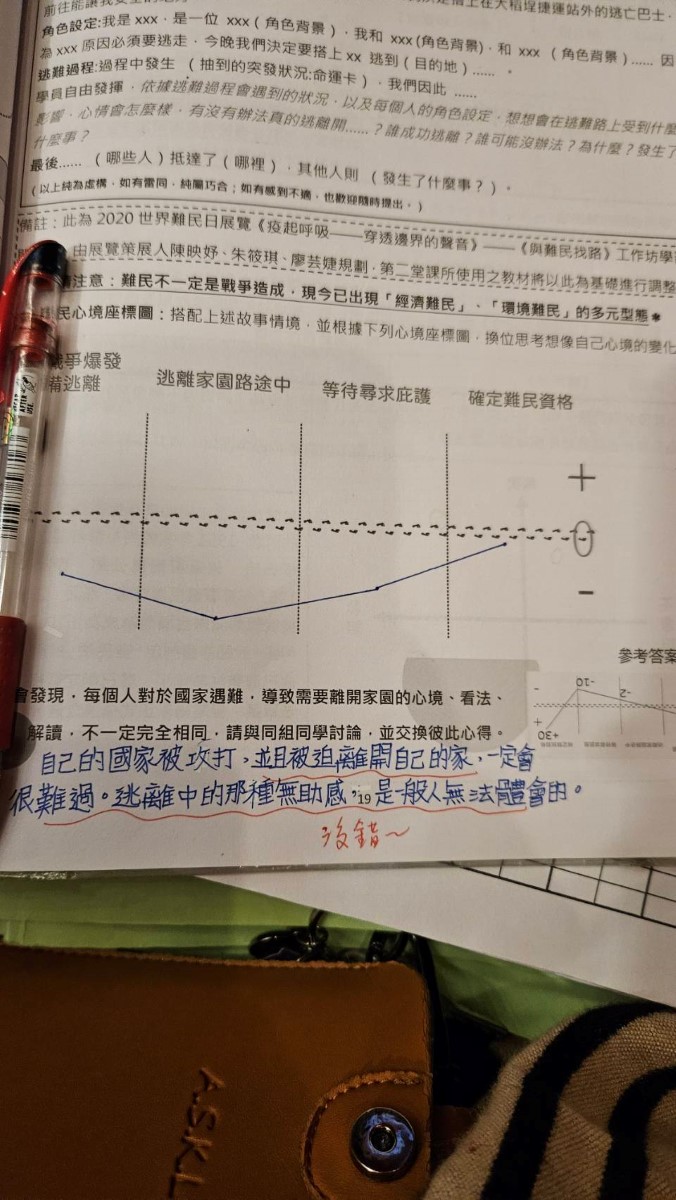 前往能讓我安全的地
搭上在大稻埕捷運站外的逃亡巴士.
角色設定:我是 xxx，是一位 xxx（角色背景），我和 xxx (角色背景)，和 xxx （角色背景）...... 因
為 xxx 原因必須要逃走，今晚我們決定要搭上 xx 逃到（目的地）...... 。
逃難過程:過程中發生 （抽到的突發狀況:命運卡），我們因此 ......
學員自由發揮，依據逃難過程會遇到的狀況，以及每個人的角色設定，想想會在逃難路上受到什麼
影響，心情會怎麼樣，有沒有辦法真的逃離開......？誰成功逃離？誰可能沒辦法？為什麼？發生了
什麼事？
最後......（哪些人）抵達了（哪裡），其他人則 （發生了什麼事？）。
（以上純為虛構，如有雷同，純屬巧合；如有感到不適，也歡迎隨時提出。）
備註：此為 2020 世界難民日展覽《疫起呼吸——穿透邊界的聲音》——《與難民找路》工作坊學
由展覽策展人陳映妤、朱筱琪、廖芸婕規劃，第二堂課所使用之教材將以此為基礎進行調整
請注意：難民不一定是戰爭造成，現今已出現「經濟難民」、「環境難民」的多元型態＊
民心境座標圖：搭配上述故事情境，並根據下列心境座標圖，換位思考想像自己心境的變化
戰爭爆發
備逃離
逃離家園路途中
等待尋求庇護
確定難民資格
+
0
-
參考答案
-
-10
-2
+
+30
會發現，每個人對於國家遇難，導致需要離開家園的心境、看法、
解讀，不一定完全相同，請與同組同學討論，並交換彼此心得。
自己的國家被攻打，並且被迫離開自己的家，一定會
很難過。逃離中的那種無助感，是一般人無法體會的。
19
沒錯～